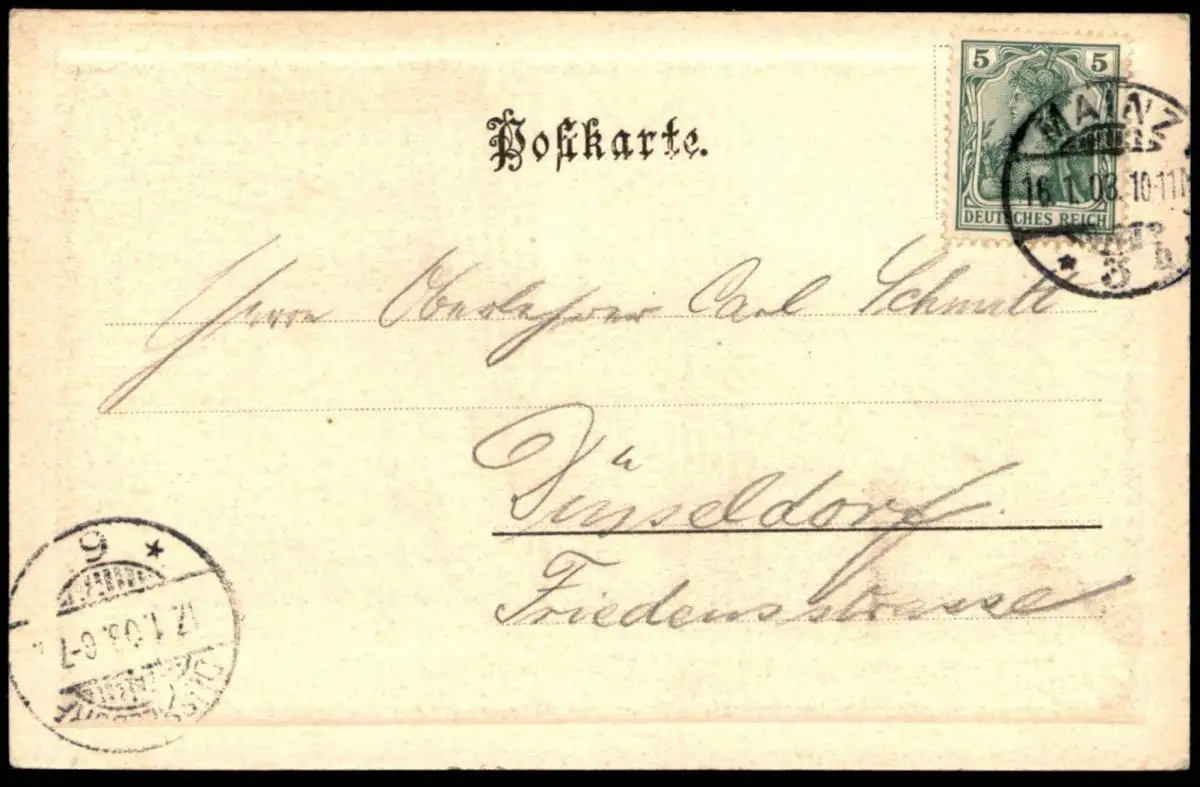 5 5
DEUTSCHES REICH
MAINZ
16.1.03.10-11
* 3
Postkarte.
Herrn Oberlehrer Carl Schmitt
Düsseldorf.
Friedensstrasse
9 *
17.1.03.6-7
DÜSSELDORF